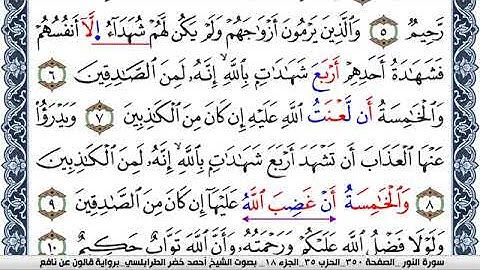 رَّحِيمٌ ٥ وَالَّذِينَ يَرْمُونَ أَزْوَٰجَهُمْ وَلَمْ يَكُن لَّهُمْ شُهَدَآءُ اِ۬لَّآ أَنفُسُهُمْ
فَشَهَٰدَةُ أَحَدِهِمْ أَرْبَعَ شَهَٰدَٰتٍ بِاللَّهِ إِنَّهُۥ لَمِنَ الصَّٰدِقِينَ ٦
وَالْخَٰمِسَةُ أَن لَّعْنَتُ اللَّهِ عَلَيْهِ إِن كَانَ مِنَ الْكَٰذِبِينَ ٧ وَيَدْرَؤُاْ
عَنْهَا الْعَذَابَ أَن تَشْهَدَ أَرْبَعَ شَهَٰدَٰتٍ بِاللَّهِ إِنَّهُۥ لَمِنَ الْكَٰذِبِينَ
٨ وَالْخَٰمِسَةُ أَنْ غَضِبَ اللَّهُ عَلَيْهَآ إِن كَانَ مِنَ الصَّٰدِقِينَ ٩
وَلَوْلَا فَضْلُ اللَّهِ عَلَيْكُمْ وَرَحْمَتُهُۥ وَأَنَّ اللَّهَ تَوَّابٌ حَكِيمٌ ١٠
سورة النور _ الصفحة ٣٥٠_ الحزب ٣٥_ الجزء ١٨ _ بصوت الشيخ أحمد خضر الطرابلسي_ برواية قالون عن نافع